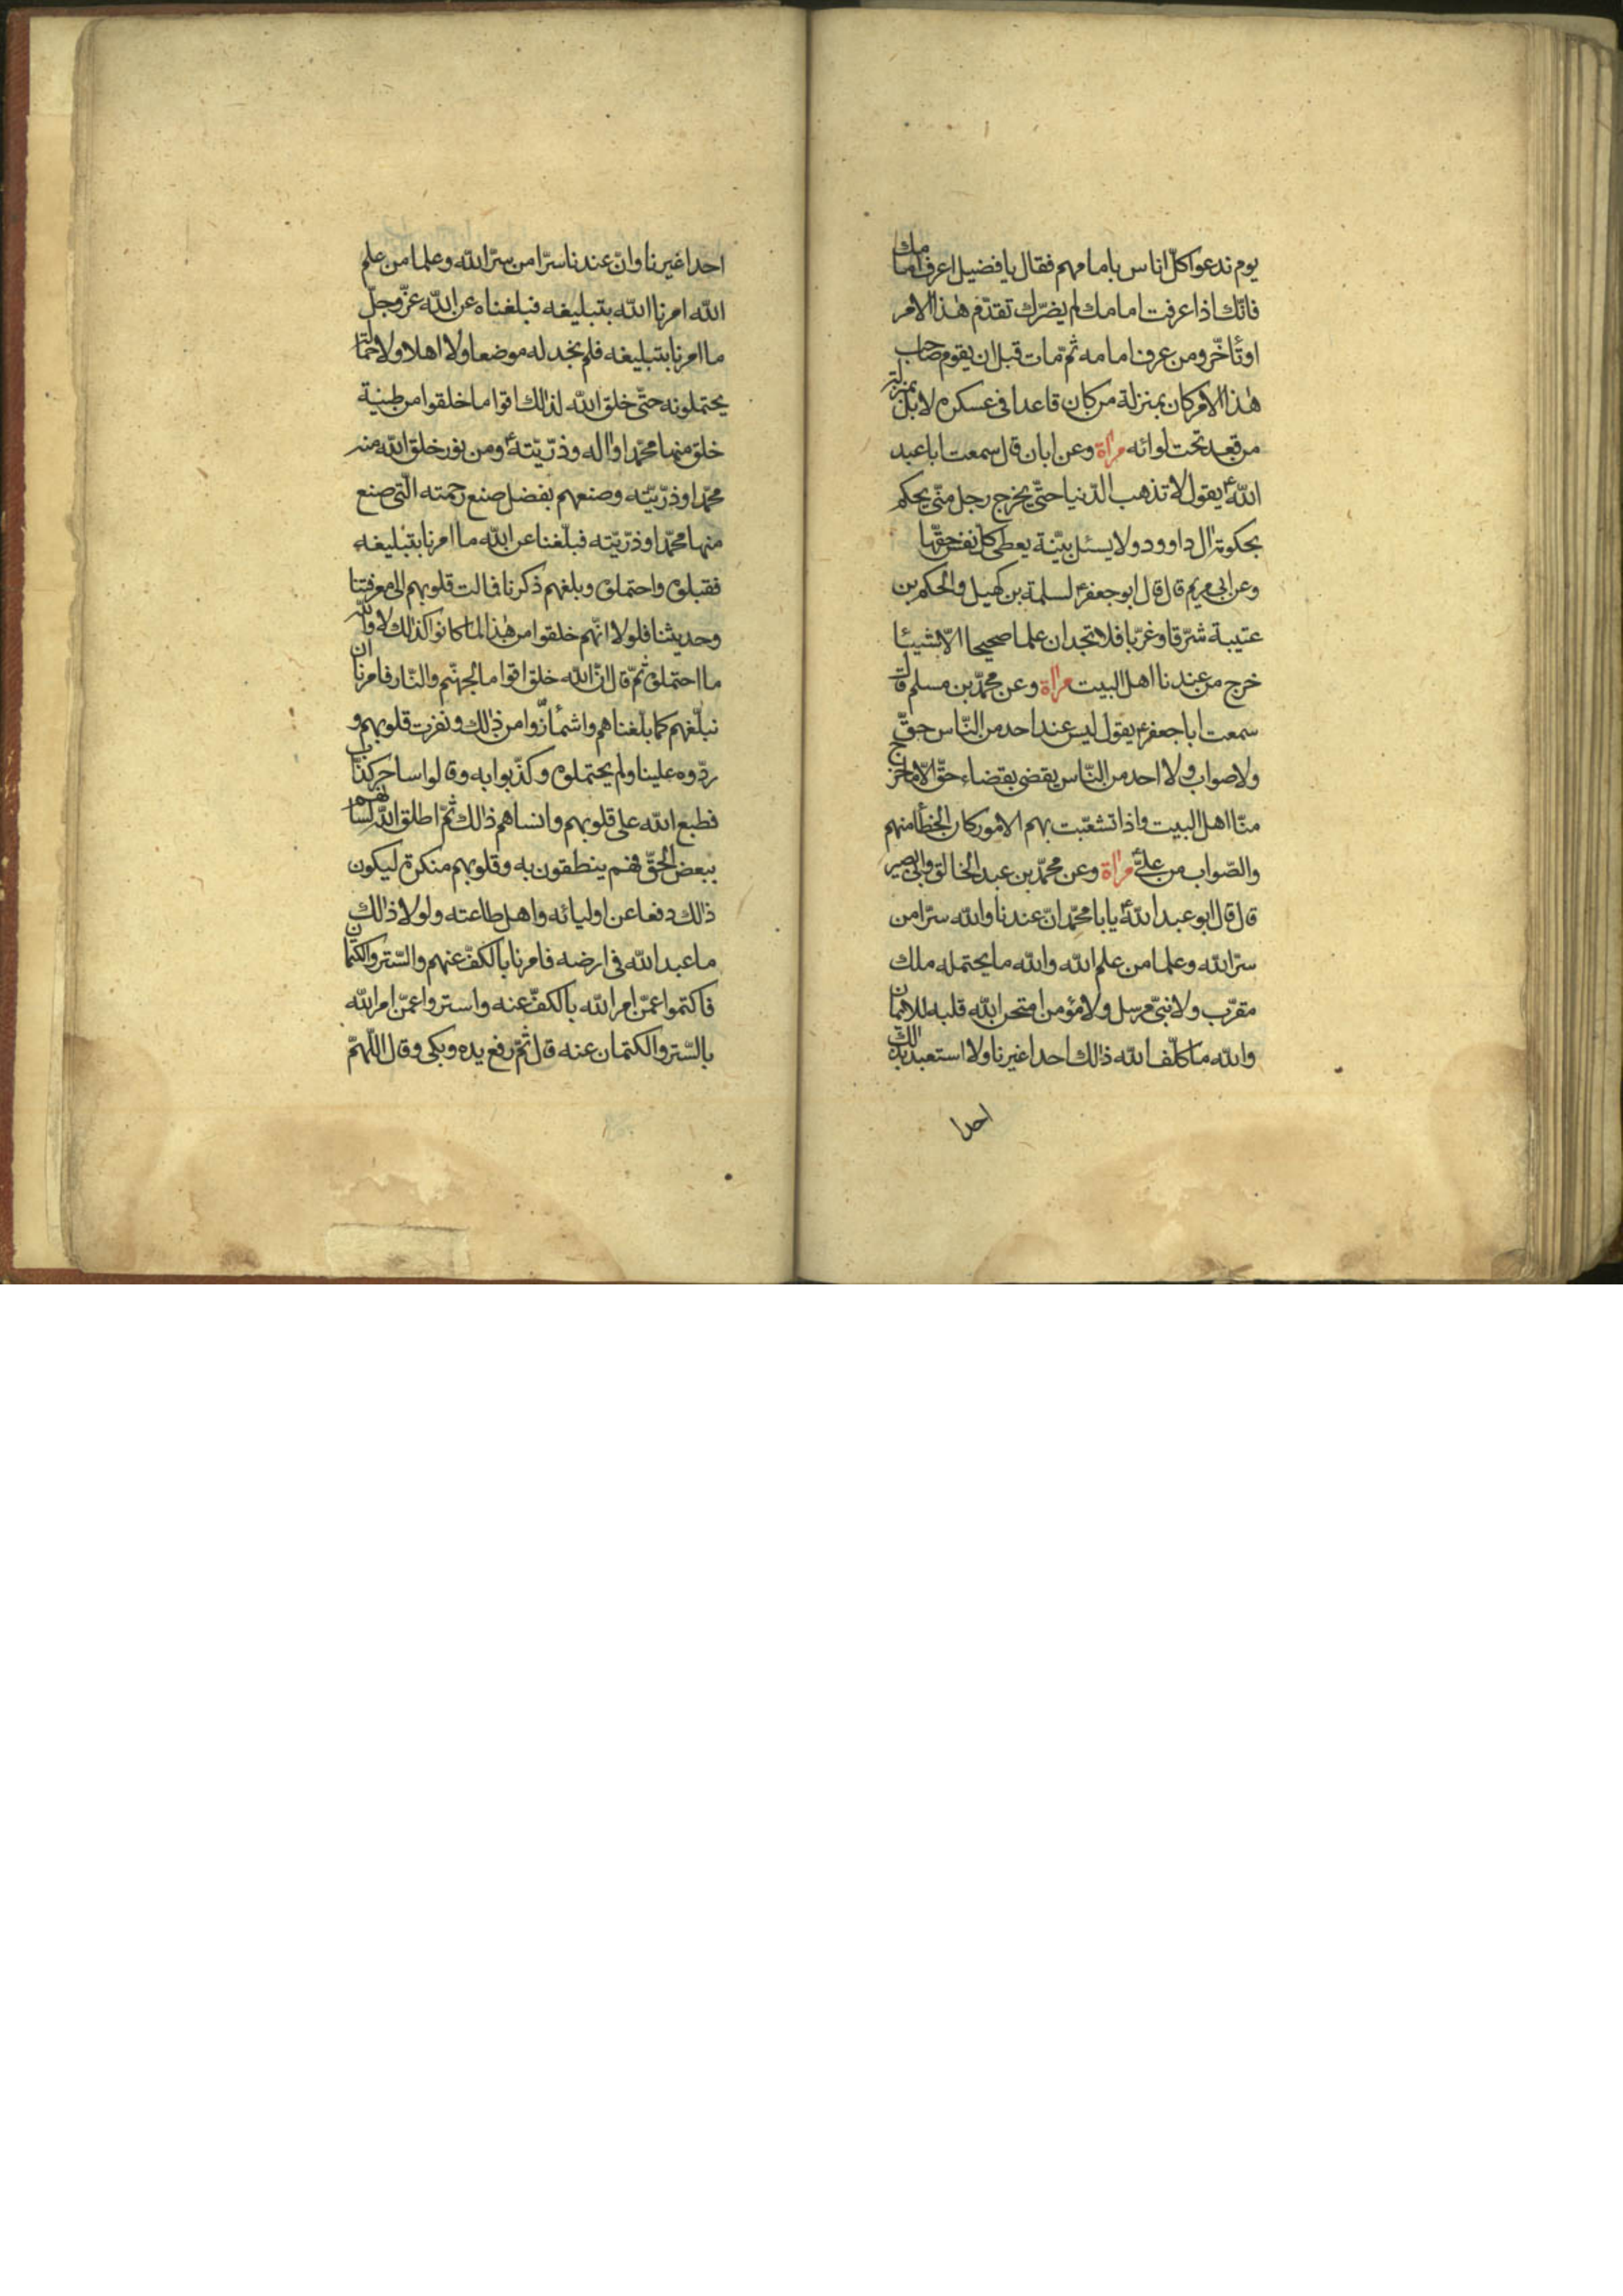 يوم ندعوا كلّ اناس بامامهم فقال يا فضيل اعرف امامك
فانّك اذا عرفت امامك لم يضرّك تقدّم هٰذا الامر
او تأخّر ومن عرف امامه ثمّ مات قبل ان يقوم صاحب
هٰذا الامر كان بمنزلة من كان قاعدا فى عسكره لا بل بمنزلة
من قعد تحت لوائه مرأة وعن ابان قال سمعت ابا عبد
اللّهؑ يقول لا تذهب الدّنيا حتّى يخرج رجل منّى يحكم
بحكومة ال داوود ولا يسئل بيّنة يعطى كل نفس حقّها
وعن ابى مريم قال قال ابو جعفرؑ لسلمة بن كهيل والحكم بن
عتيبة شرّقا وغرّبا فلا تجدان علما صحيحا الّا شيئا
خرج من عندنا اهل البيت مرأة وعن محمّد بن مسلم قال
سمعت ابا جعفرؑ يقول ليس عند احد من النّاس حقّ
ولا صواب ولا احد من النّاس يقضى بقضاء حقّ الّا ما خرج
منّا اهل البيت واذا تشعّبت بهم الامور كان الخطأ منهم
والصّواب من علىّؑ مرأة وعن محمّد بن عبد الخالق وابى بصير
قال قال ابو عبد اللّهؑ يا با محمّد انّ عندنا واللّه سرّا من
سرّ اللّه وعلما من علم اللّه واللّه ما يحتمله ملك
مقرّب ولا نبىّ مرسل ولا مؤمن امتحن اللّه قلبه للايمان
واللّه ما كلّف اللّه ذالك احدا غيرنا ولا استعبد بذالك
احدا
احدا غيرنا وانّ عندنا سرّا من سرّ اللّه وعلما من علم
اللّه امرنا اللّه بتبليغه فبلغناه عن اللّه عزّ وجلّ
ما امرنا بتبليغه فلم نجد له موضعا ولا اهلا ولا حمّالة
يحتملونه حتّى خلق اللّه لذالك اقواما خلقوا من طينة
خلق منها محمّدا واله وذرّيّتهؑ ومن نور خلق اللّه منه
محمّدا وذرّيّته وصنعهم بفضل صنع رحمته الّتى صنع
منها محمّدا وذرّيّته فبلّغنا عن اللّه ما امرنا بتبليغه
فقبلوه واحتملوه وبلغهم ذكرنا فمالت قلوبهم الى معرفتنا
وحديثنا فلولا انّهم خلقوا من هٰذا لما كانوا كذالك لا واللّه
ما احتملوه ثمّ قال انّ اللّه خلق اقواما لجهنّم والنّار فامرنا ان
نبلّغهم كما بلّغناهم واشمأزّوا من ذالك ونفرت قلوبهم و
ردّوه علينا ولم يحتملوه وكذّبوا به وقالوا ساحر كذّاب
فطبع اللّه على قلوبهم وانساهم ذالك ثمّ اطلق اللّه لسانهم
ببعض الحقّ فهم ينطقون به وقلوبهم منكرة ليكون
ذالك دفعا عن اوليائه واهل طاعته ولولا ذالك
ما عبد اللّه فى ارضه فامرنا بالكفّ عنهم والسّتر والكتمان
فاكتموا عمّن امر اللّه بالكفّ عنه واستروا عمّن امر اللّه
بالسّتر والكتمان عنه قال ثمّ رفع يده وبكى وقال اللّهمّ